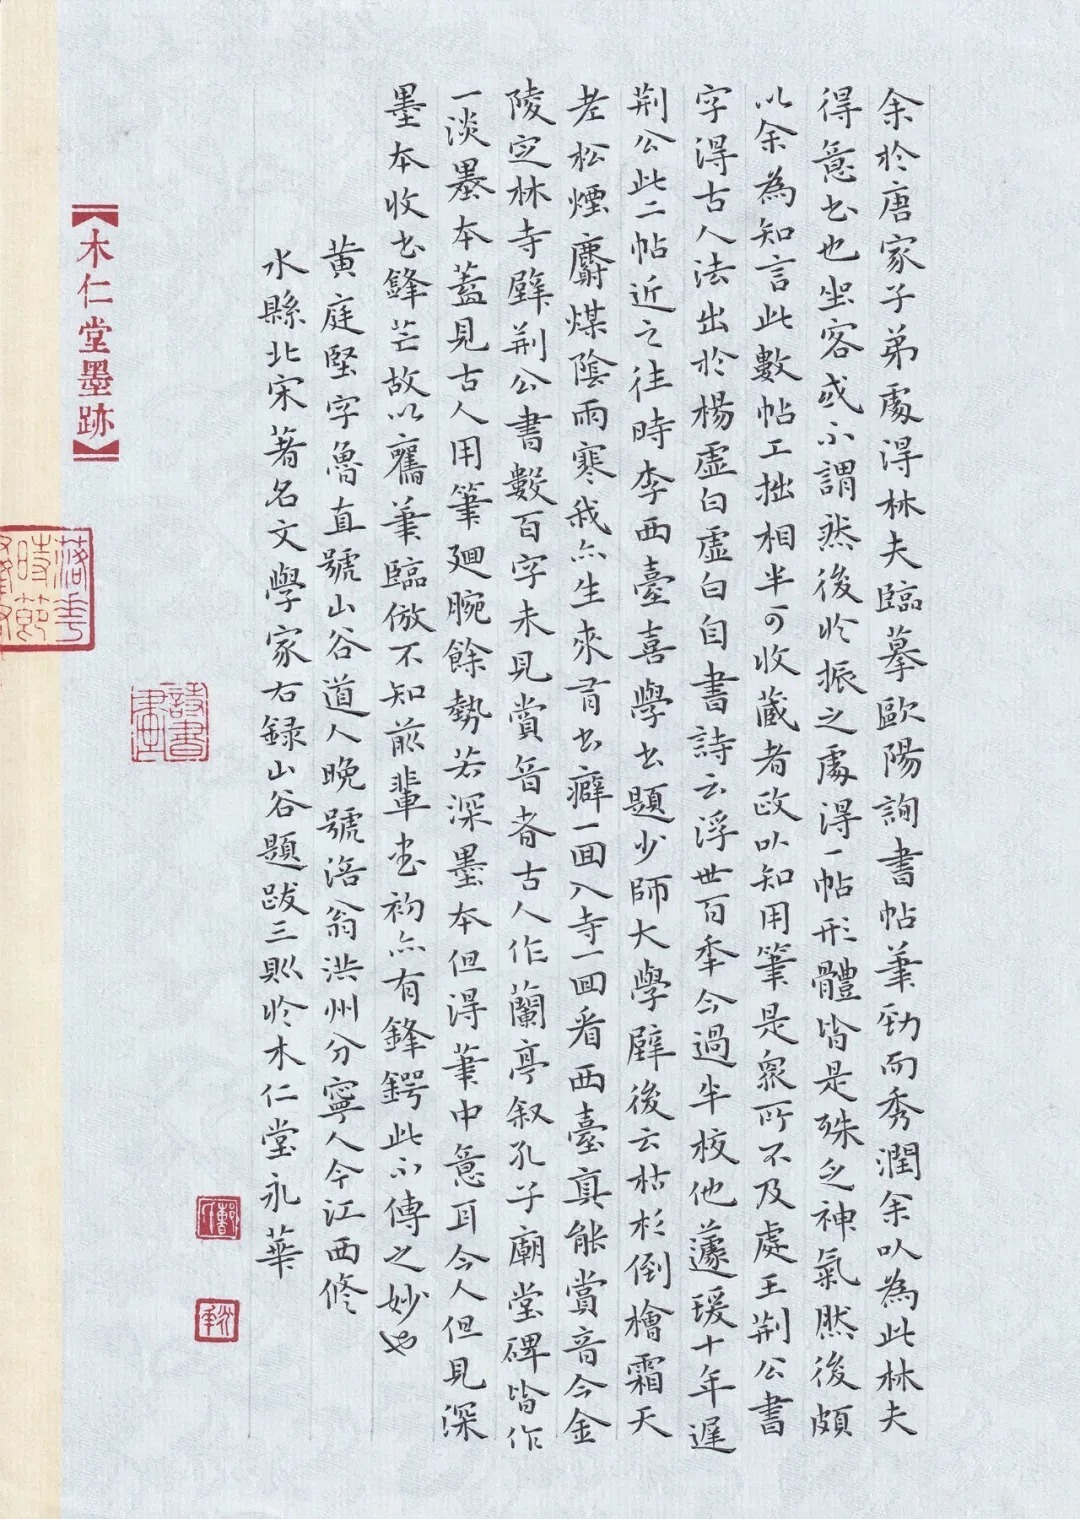 余於唐家子弟處得林夫臨摹歐陽詢書帖筆勁而秀潤余以為此林夫
得意書也坐客或不謂然後於振之處得一帖形體皆是殊乏神氣然後頗
以余為知言此數帖工拙相半可收藏者政以知用筆是眾所不及處王荊公書
字得古人法出於楊虛白虛白自書詩云浮世百年今過半校他蘧瑗十年遲
荊公此二帖近之往時李西臺喜學書題少師大學壁後云枯杉倒檜霜天
老松煙麝煤陰雨寒我亦生來有書癖一回入寺一回看西臺真能賞音今金
陵定林寺壁荊公書數百字未見賞音者古人作蘭亭叙孔子廟堂碑皆作
一淡墨本蓋見古人用筆廻腕餘勢若深墨本但得筆中意耳今人但見深
墨本收書鋒芒故以舊筆臨倣不知前輩書初亦有鋒鍔此不傳之妙也
黃庭堅字魯直號山谷道人晚號涪翁洪州分寧人今江西修
水縣北宋著名文學家右錄山谷題跋三則於木仁堂永華
【木仁堂墨跡】
落花
時節
詩書
畫